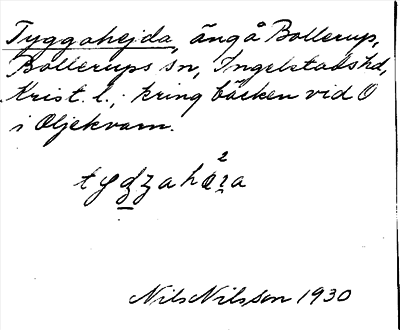 Tyggahejda, äng å Bollerup,
Bollerups sn, Ingelstads hd,
Krist. l., kring bäcken vid O
i Oljekvarn.
Nils Nilsson 1930